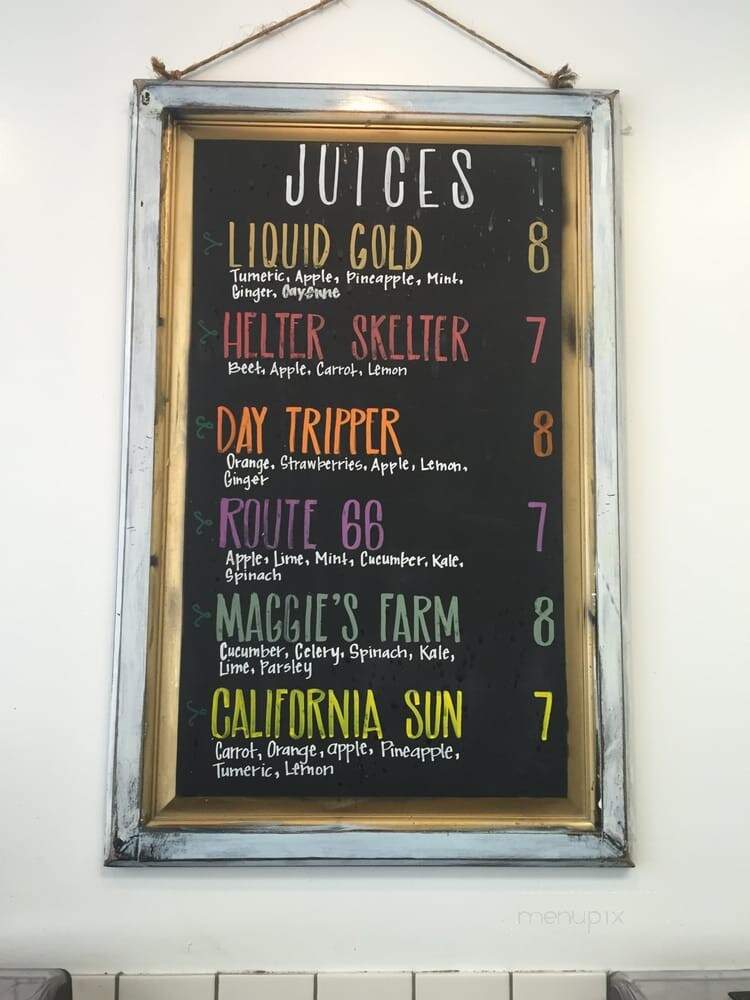 JUICES
LIQUID GOLD 8
Tumeric, Apple, Pineapple, Mint,
Ginger, Cayenne
HELTER SKELTER 7
Beet, Apple, Carrot, Lemon
DAY TRIPPER 8
Orange, Strawberries, Apple, Lemon,
Ginger
ROUTE 66 7
Apple, Lime, Mint, Cucumber, Kale,
Spinach
MAGGIE'S FARM 8
Cucumber, Celery, Spinach, Kale,
Lime, Parsley
CALIFORNIA SUN 7
Carrot, Orange, apple, Pineapple,
Tumeric, Lemon
menupix